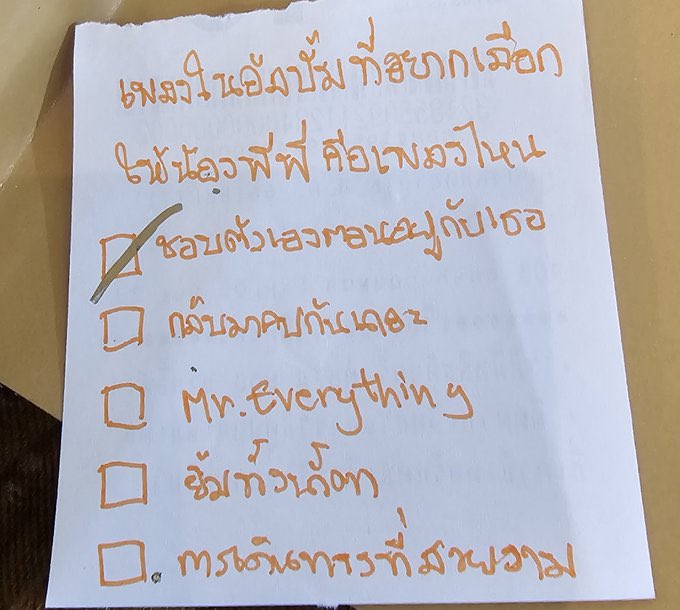 เพลงในอัลบั้มที่อยากเลือก
ให้น้องพีพี คือเพลงไหน
ชอบตัวเองตอนอยู่กับเธอ
กลับมาคบกันเถอะ
Mr. Everything
ยิ้มทั้งน้ำตา
การเดินทางที่สวยงาม